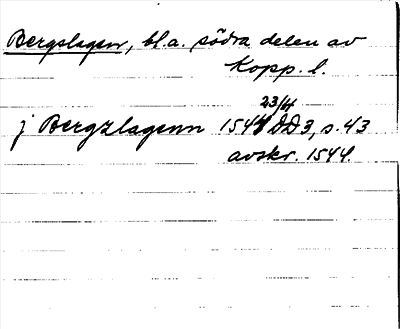 Bergslagen, bl.a. södra delen av
Kopp. l.
23/4
j Bergzlagenn 1544 DD3, s. 43
avskr. 1544.